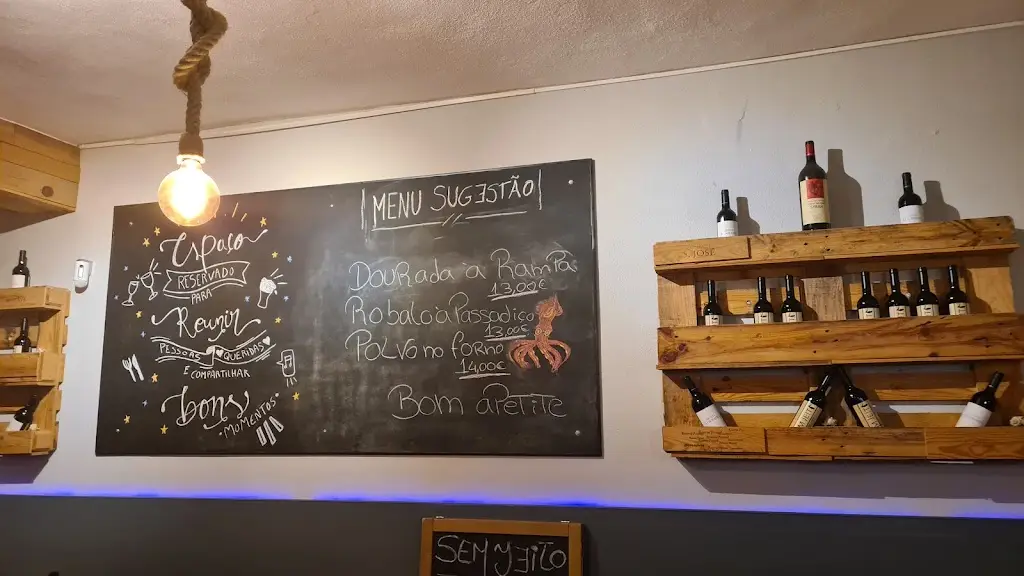 Espaço
RESERVADO
PARA
Reunir
PESSOAS QUERIDAS
E COMPARTILHAR
bons
MOMENTOS
MENU SUGESTÃO
Dourada à Rampa
13,00€
Robalo à Passadiço
13,00€
Polvo no forno
14,00€
Bom apetite
S. JOSÉ
SEM JEITO